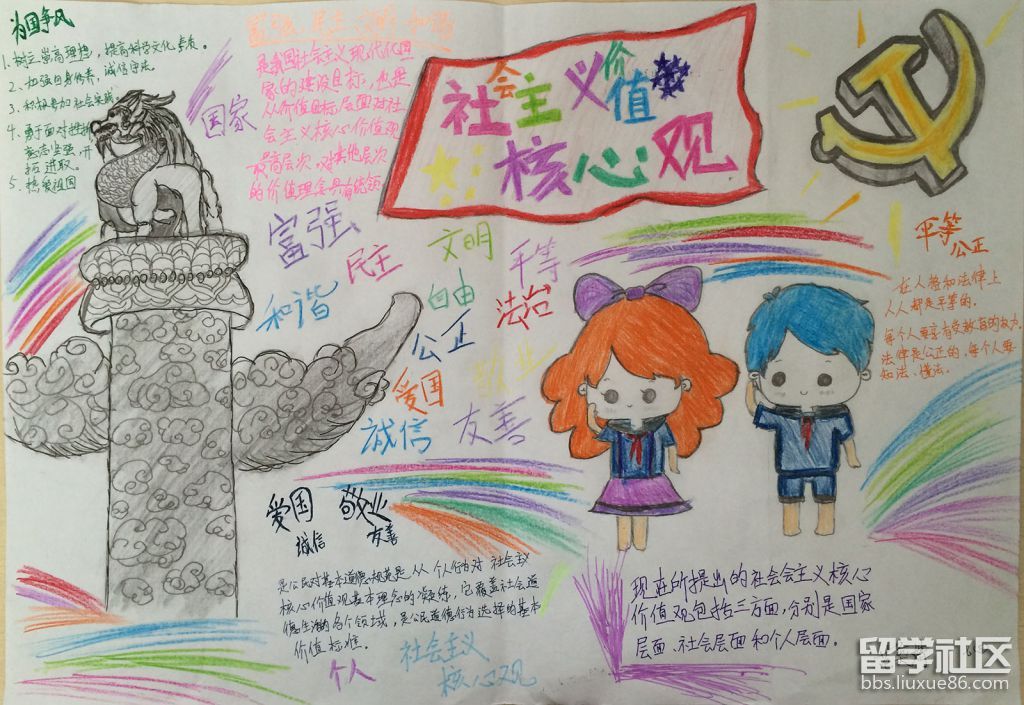 为国争风
1. 树立崇高理想，提高科学文化素质。
2、加强自身修养，诚信守法
3、积极参加社会实践
4、勇于面对挫折
意志坚强，开
拓进取。
5、热爱祖国
国家
富强、民主、文明、和谐
是我国社会主义现代化国
家的建设目标，也是
从价值目标层面对社
会主义核心价值观
最高层次，对其他层次
的价值理念具有统领
社会主义价值
核心观
富强
民主
文明
平等
和谐
自由
法治
公正
爱国
敬业
诚信
友善
平等
公正
在人格和法律上
人人都是平等的。
每个人要享有受教育的权力。
法律是公正的，每个人要
知法、懂法.
爱国 敬业
诚信 友善
是公民对基本道德规范是从从个人行为对社会主义
核心价值观基本理念的凝练，它覆盖社会道
德生活的各个领域，是公民道德行为选择的基本
价值标准。
个人
社会主义
核心观
现在所提出的社会会主义核心
价值观包括三方面，分别是国家
层面、社会层面和个人层面。
留学社区
bbs.liuxue86.com